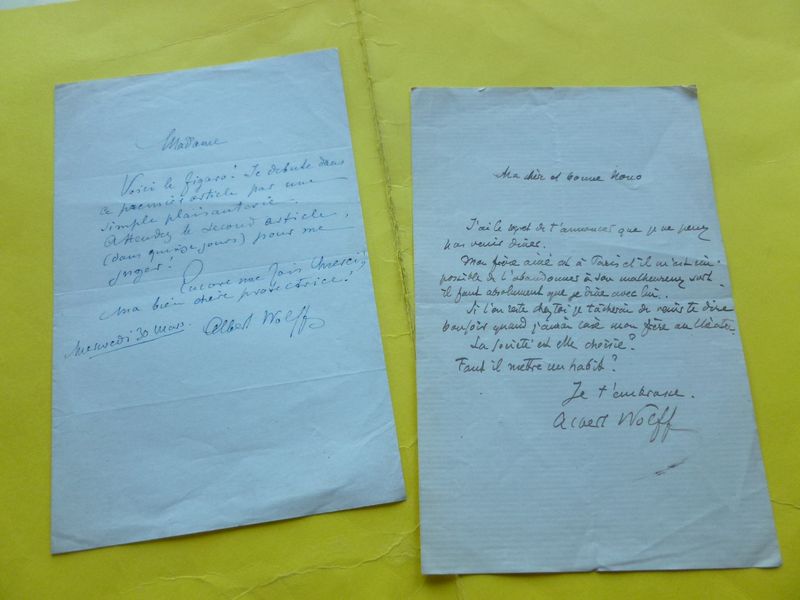 Madame
Voici le figaro! Je debute dans
ce premier article par une
simple plaisanterie.
Attendez le second article,
(dans quinze jours) pour me
juger!
Encore une fois Merci,
ma bien chère protectrice!
Mercredi 30 Mars.
Albert Wolff
Ma chère et bonne
J'ai le regret de t'annoncer que je ne peux
pas venir dîner.
Mon frère aîné est à Paris et il m'est im-
possible de l'abandonner à son malheureux sort.
Il faut absolument que je dîne avec lui.
Si l'on reste chez toi je tâcherai de venir te dire
bonsoir quand j'aurai casé mon frère au théâtre.
La société est elle choisie?
Faut il mettre un habit?
Je t'embrasse.
Albert Wolff